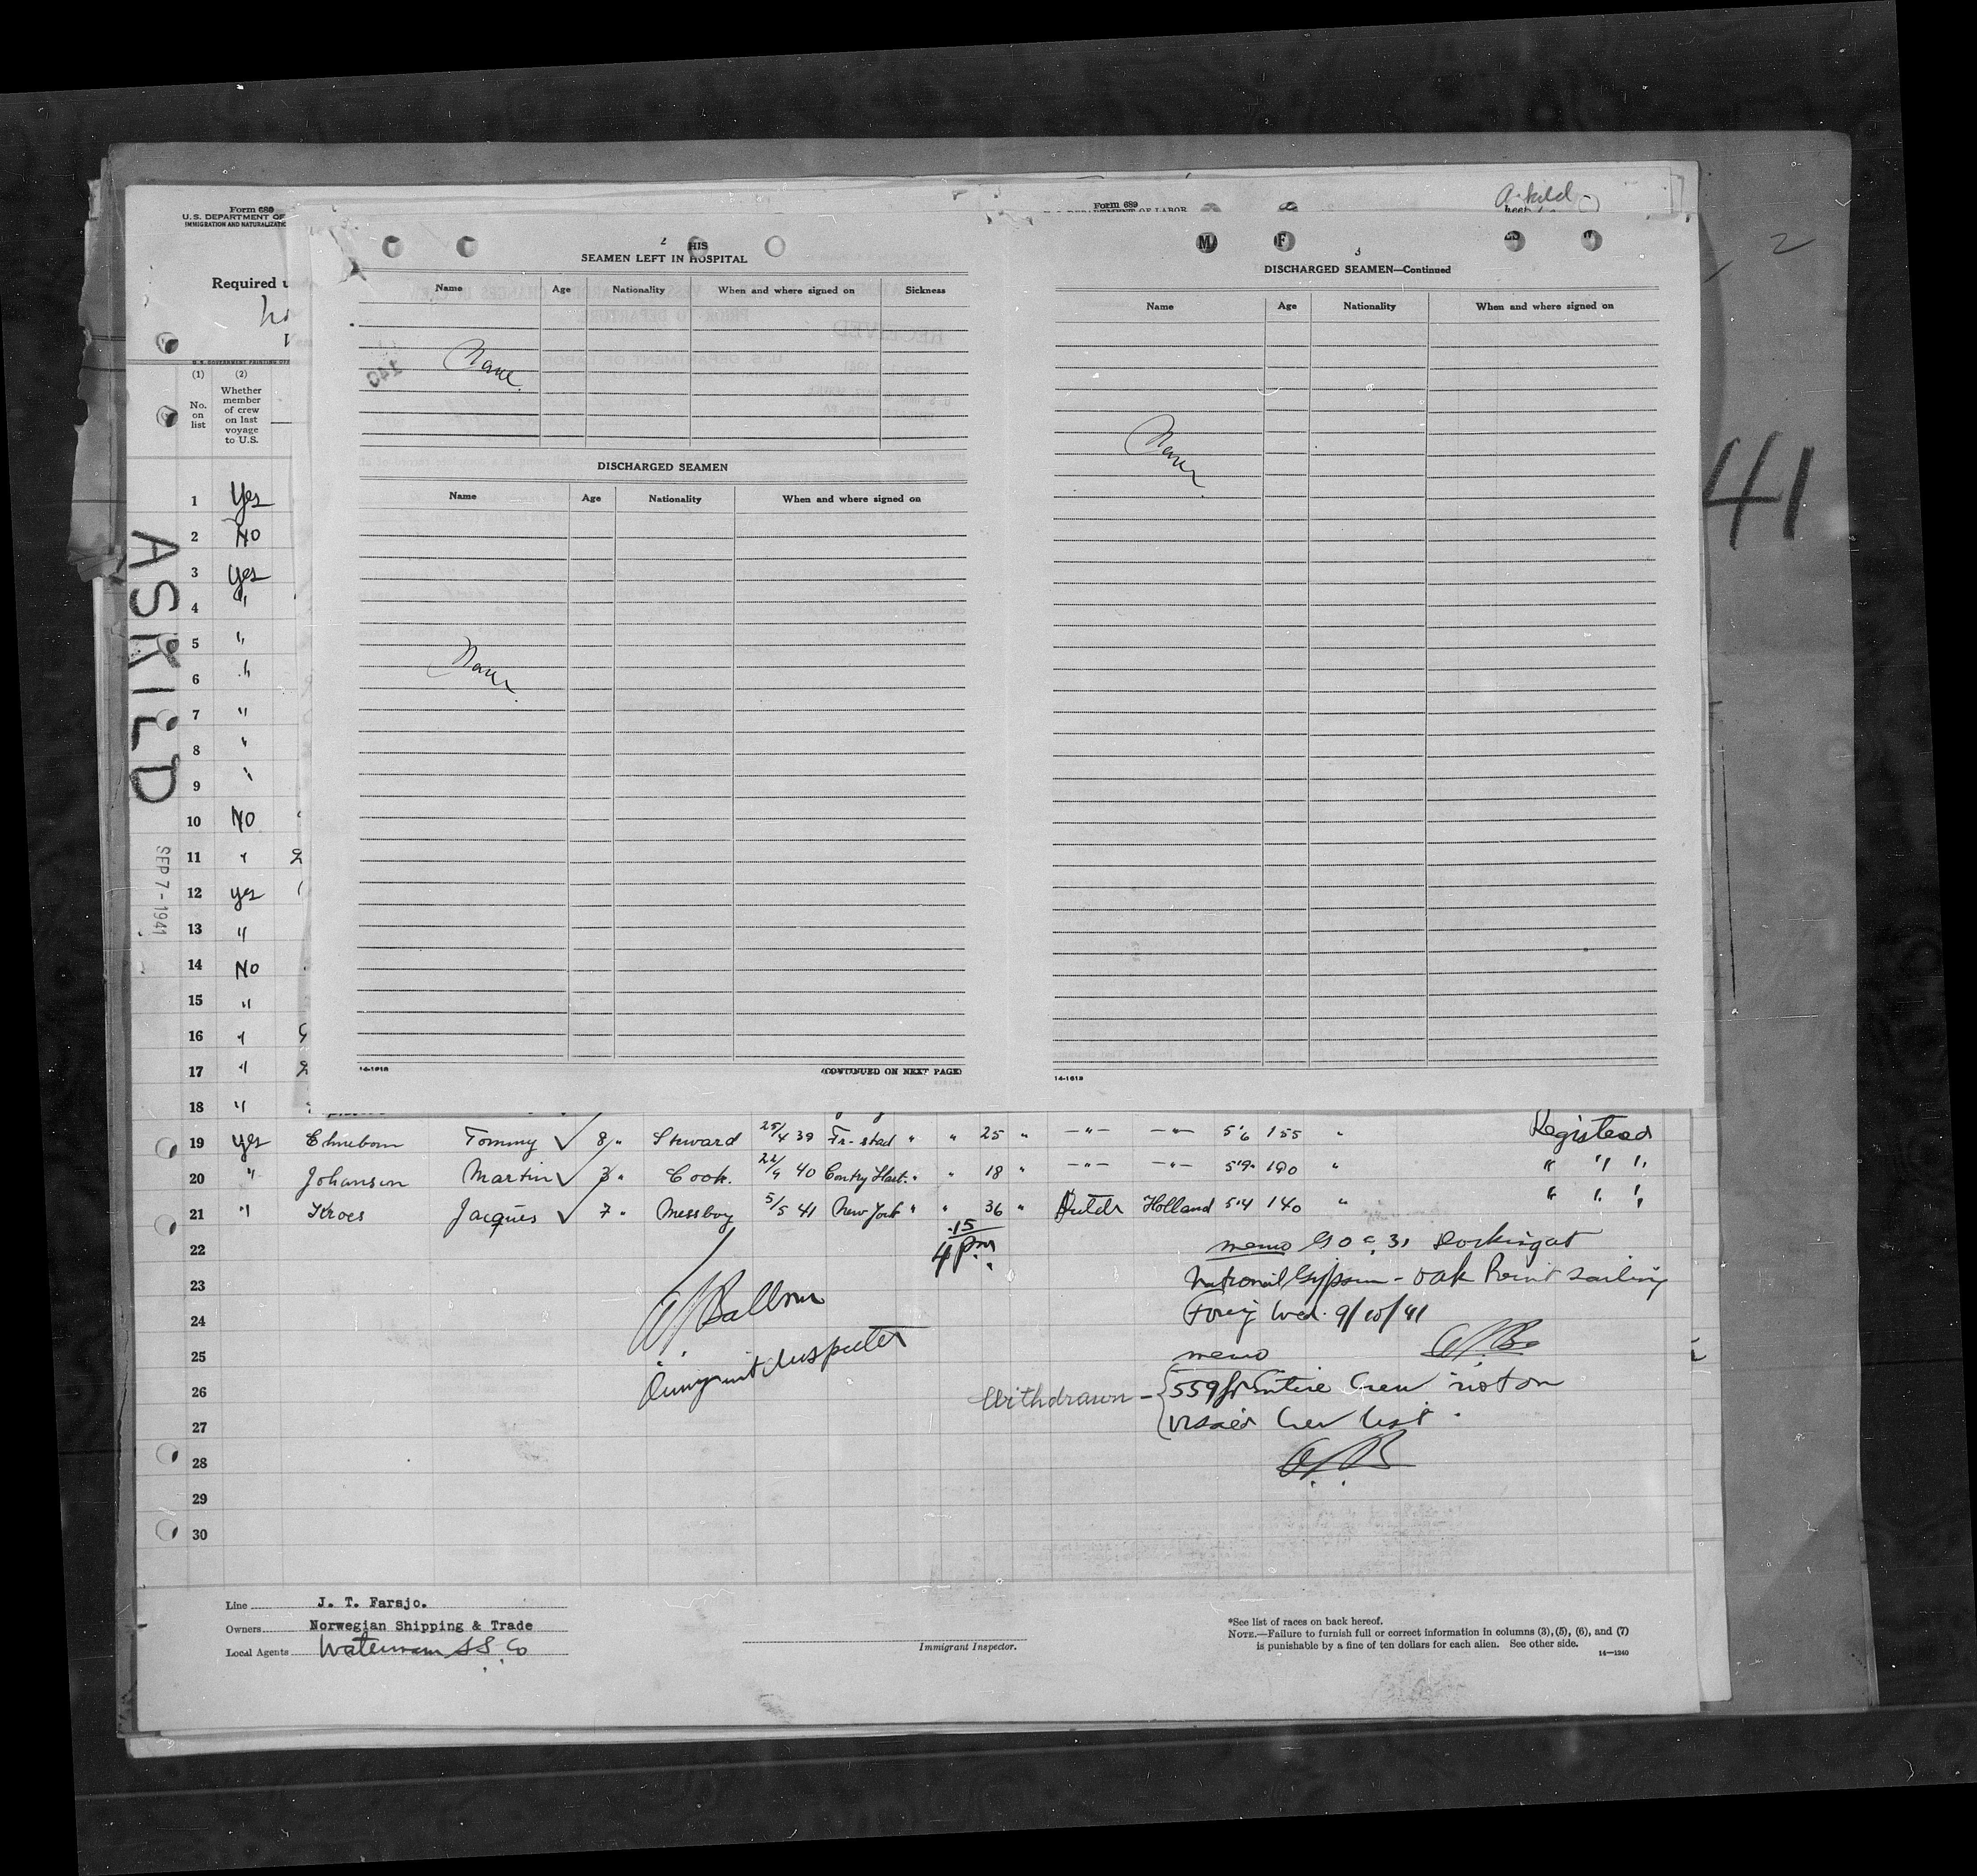 Form 689
U.S. DEPARTMENT OF
IMMIGRATION AND NATURALIZATIO
Required u
(1)
(2)
No.
on
list
Whether
member
of crew
on last
voyage
to U.S.
ASKILD
SEP 7 - 1941
Form 689
DEPARTMENT OF LABOR
Askild
2
41
2
HIS
SEAMEN LEFT IN HOSPITAL
Name Age Nationality When and where signed on Sickness
None
DISCHARGED SEAMEN
Name Age Nationality When and where signed on
None
14-1618
(CONTINUED ON NEXT PAGE)
M F
3
DISCHARGED SEAMEN—Continued
Name Age Nationality When and where signed on
None
14-1618
1 Yes
2 No
3 Yes
4 "
5 "
6 "
7 "
8 "
9 "
10 No
11 "
12 yes
13 "
14 No
15 "
16 "
17 "
18 "
19 yes Tommy ✓ 8 " Steward 25/4 39 Fr-stad " " 25 " —"— —"— 5'6 155 " Registead
20 " Johansen Martin ✓ 3 " Cook. 22/9 40 " " 18 " —"— —"— 5'9" 190 " " " "
21 " Kroes Jacques ✓ 7 " Messboy 5/5 41 New York " " 36 " Dutch Holland 5'4 140 " " " "
22
23
24
25
26
27
28
29
30
4 15 pm
Immigrant Inspector
memo
Docking at
National Gypsum - Oak Point sailing
Foreig Wed. 9/10/41
memo
Withdrawn - 559 for Entire Crew not on
visaed Crew list.
Line J. T. Farsjo.
Owners Norwegian Shipping & Trade
Local Agents Waterman SS Co
Immigrant Inspector.
*See list of races on back hereof.
NOTE.—Failure to furnish full or correct information in columns (3), (5), (6), and (7)
is punishable by a fine of ten dollars for each alien. See other side.
14—1240